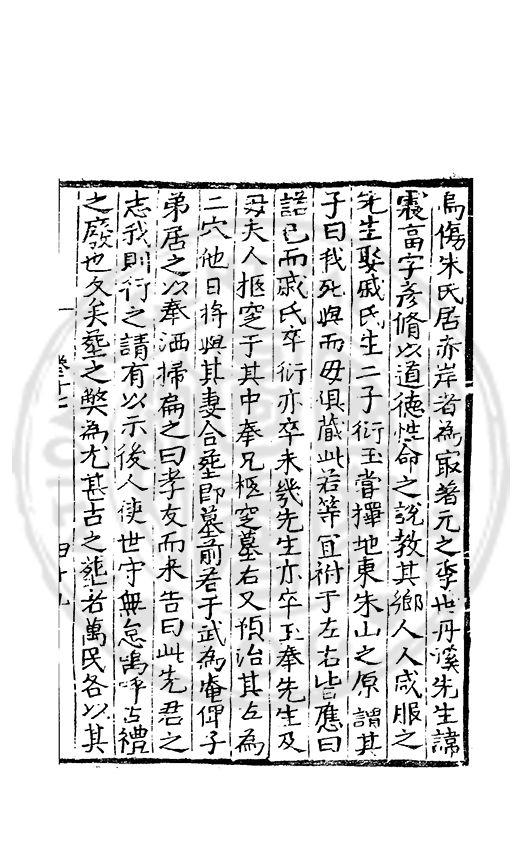 烏傷朱氏居赤岸者為㝡著元之季世丹溪先生諱
震亨字彥脩以道德性命之說教其鄉人人咸服之
先生娶戚氏生二子衍玉嘗擇地東朱山之原謂其
子曰我死與而母俱葬此若等冝祔于左右皆應曰
諾已而戚氏卒衍亦卒未幾先生亦卒玉奉先生及
母夫人柩窆于其中奉兄柩窆墓右又預治其左為
二穴他日將與其妻合葬即墓前若干武為庵俾子
弟居之以奉洒掃扁之曰孝友而来告曰此先君之
志我則行之請有以示後人使世守無怠嗚呼古禮
之廢也久矣葬之獘為尤甚古之葬者萬民各以其